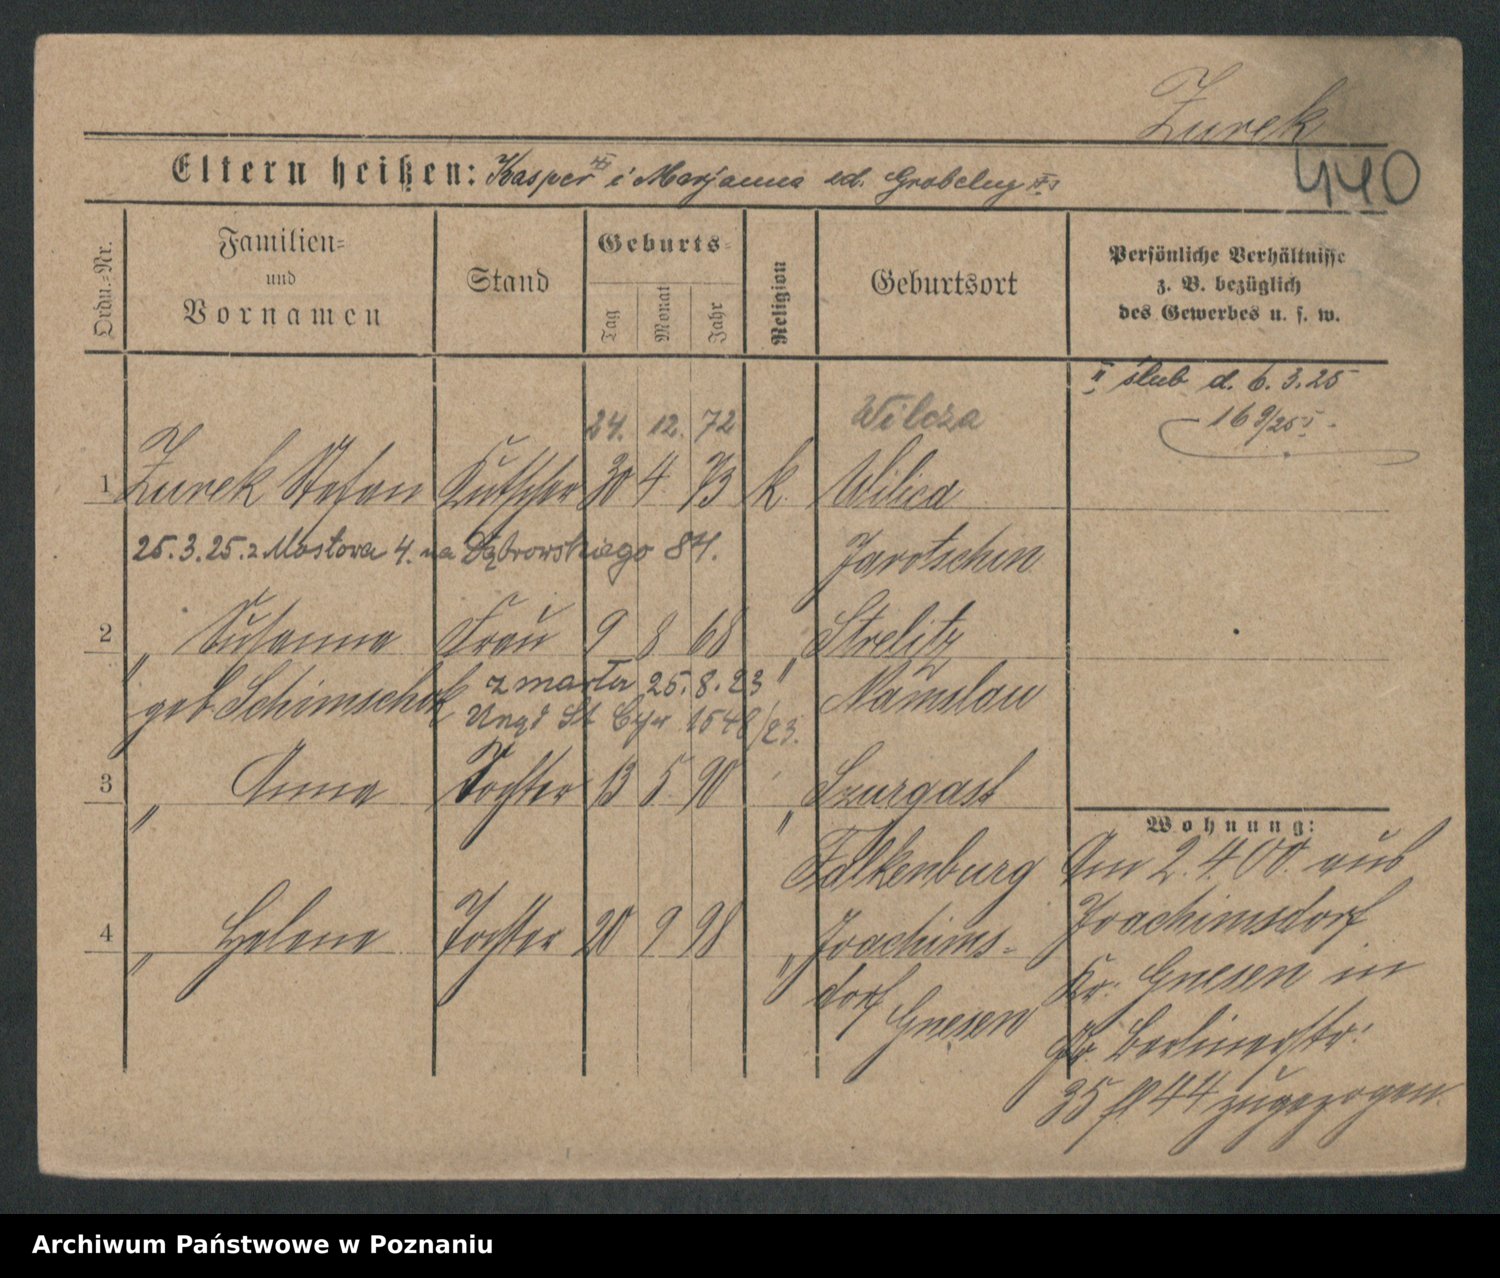 Zurek
440
Eltern heißen: Kasper i Marjanna
Ordn.-Nr.
Familien-
und
Vornamen
Stand
Geburts-
Tag
Monat
Jahr
Religion
Geburtsort
Persönliche Verhältnisse
z. B. bezüglich
des Gewerbes u. s. w.
II ślub d. 6.3.25
169/25
24. 12. 72 Wilcza
1 Zurek Stefan Kutscher 30 4 73 k. Wilica
25.3.25. z Mostowa 4. na Dąbrowskiego 84. Jarotschin
2 " Susanna Frau 9 8 68 " Strelitz
geb Schimschok zmarła 25.8.23 Namslau
Urzęd St Cyw 1548/23.
3 " Anna Tochter 13 5 90 " Szurgast
Falkenburg
4 " Helene Tochter 20 9 98 " Joachims-
dorf
Gnesen
Wohnung:
Am 2.4.00. aus
Joachimsdorf
Kr. Gnesen in
Berlinerstr.
35 44 zugezogen.
Archiwum Państwowe w Poznaniu